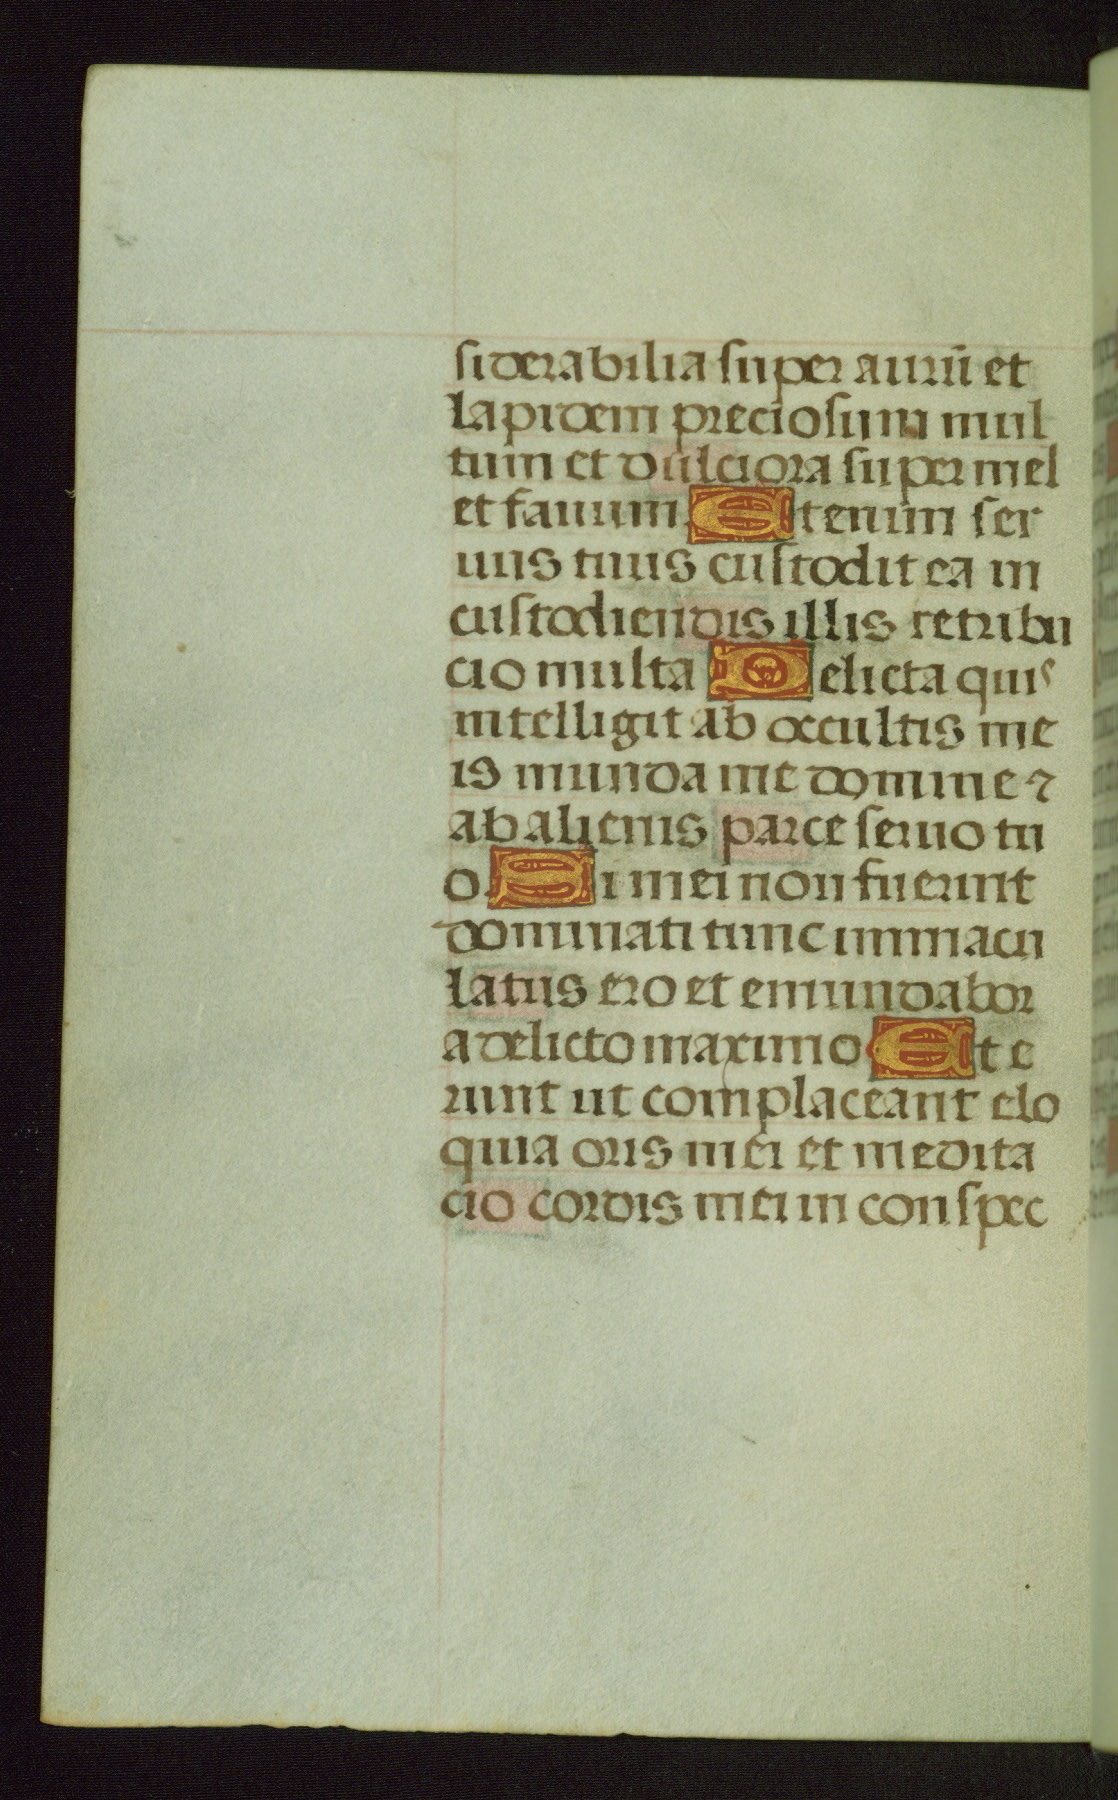 siderabilia super aurū et
lapidem preciosum mul
tum et dulciora super mel
et fauum Etenim ser
uus tuus custodit ea in
custodiendis illis retribu
cio multa Delicta quis
intelligit ab occultis me
is munda me domine ⁊
ab alienis parce seruo tu
o Si mei non fuerint
dominati tunc immacu
latus ero et emundabor
a delicto maximo Et e
runt ut complaceant elo
quia oris mei et medita
cio cordis mei in conspec